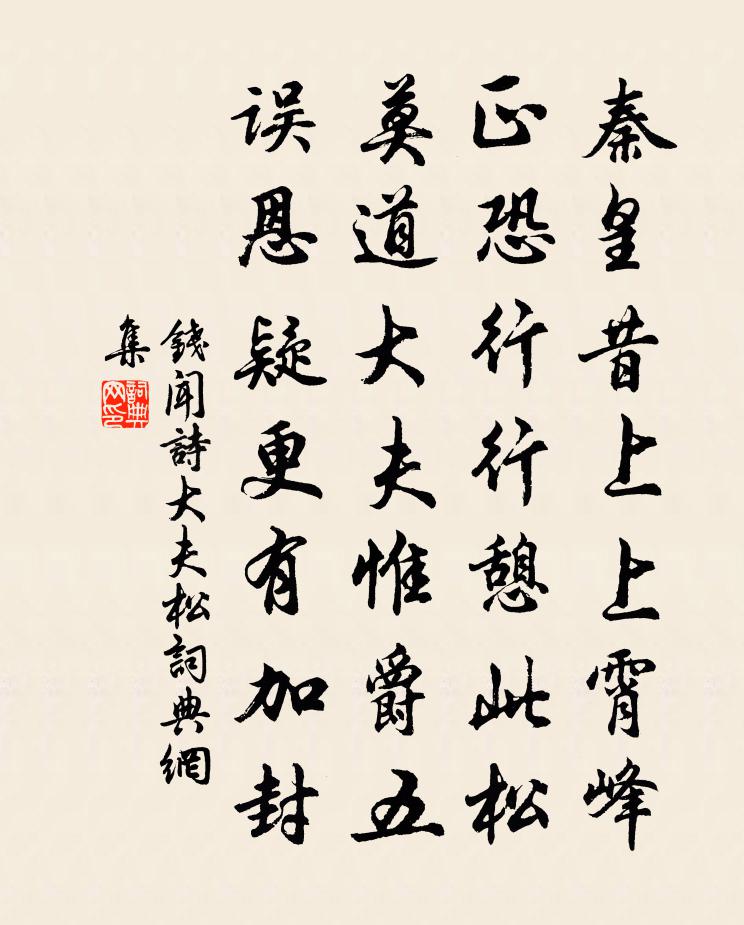 秦皇昔上上霄峰
正恐行行憩此松
莫道大夫惟爵五
误恩疑更有加封
錢聞詩大夫松詞典網
集
詞典
网印